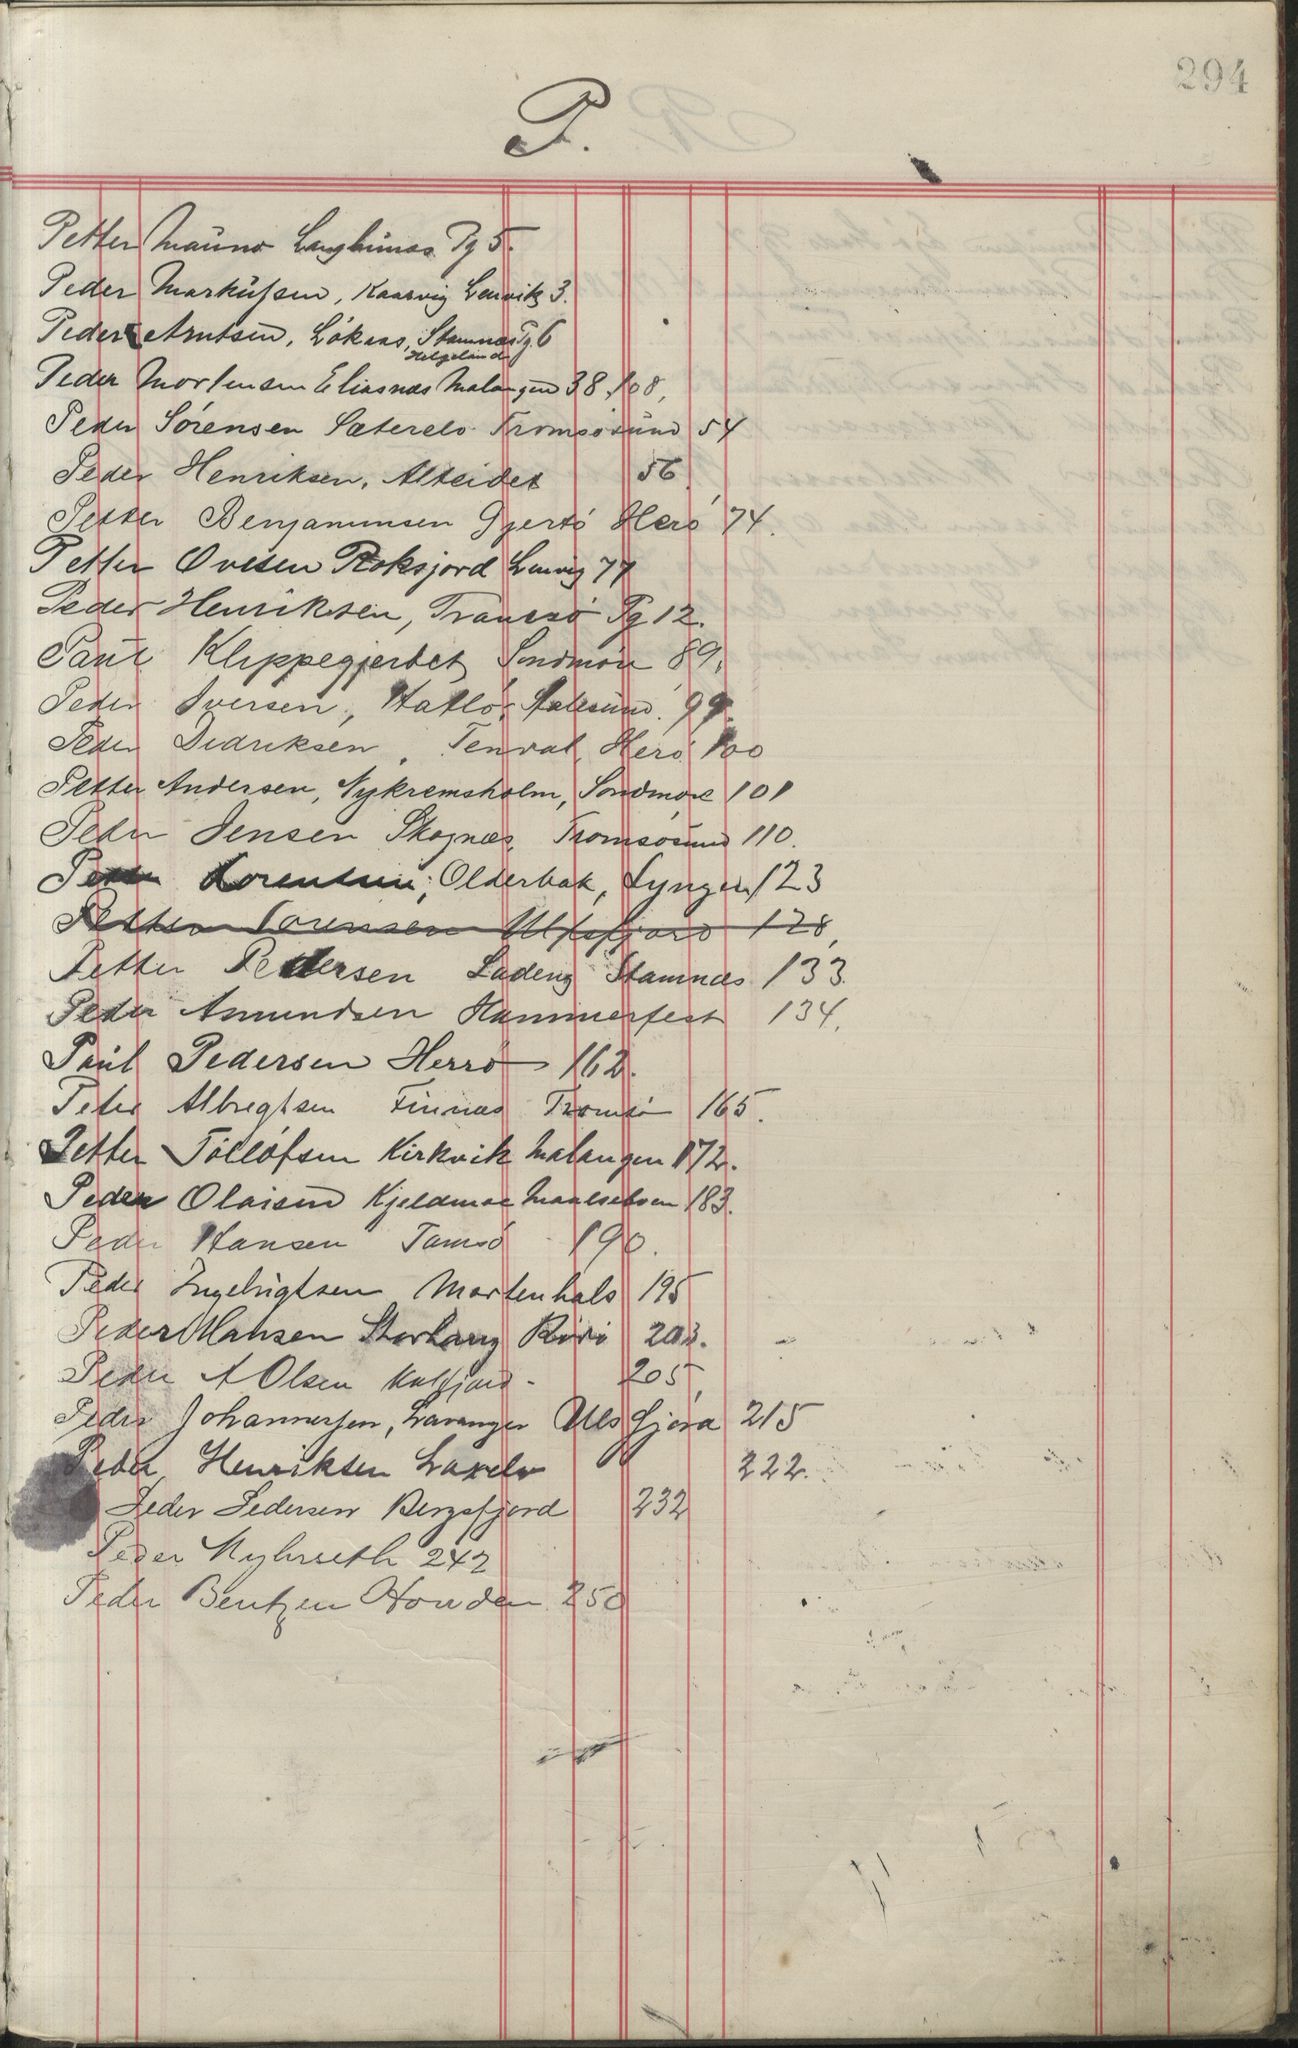 294
P.
Petter Mauno Pg 5.
Peder Markussen, Kaarvig Lenvik 3.
Peder Arntsen, Lökaas, Stamnæs Pg. 6
Helgeland
Peder Mortensen Eliasnæs Malangen 38, 108,
Peder Sörensen Sæterelv Tromsösund 54
Peder Henriksen, Alteidet 56
Petter Benjaminsen Gjertö Herö 74.
Petter Ovesen Roksjord Lenvig 77
Peder Henriksen, Tranesö Pg 12.
Paul Klippegjerdet, Sondmöre 89,
Peder Iversen, Hatlö, Aalesund. 99.
Peder Dedriksen, Tenval, Herö 100
Petter Andersen, Nykremsholm, Sondmöre 101
Peder Jensen Skognæs, Tromsösund 110.
Petter Lorentsen, Olderbak, Lyngen 123
Petter Sorensen Ulfsfjord 128,
Petter Pedersen Ladeng Stamnæs 133
Peder Amundsen Hammerfest 134,
Paul Pedersen Herrö 162.
Peter Albregtsen Finnæs Tromsö 165.
Petter Tollófsen Kirkvik Malangen 172.
Peder Olaisen Kjeldmoe Maalselven 183.
Peder Hansen Tamsö 190.
Peder Ingebrigtsen Mortenhals 195
Peder Hansen Storhaug 203.
Peder A Olsen Kalfjord - 205,
Peder Johannessen, Lavanger Ulsfjord 215
Peder Henriksen Laxelv 222.
Peder Pedersen Bergsfjord 232
Peder Myhrseth 242
Peder Bentzen Horvden 250